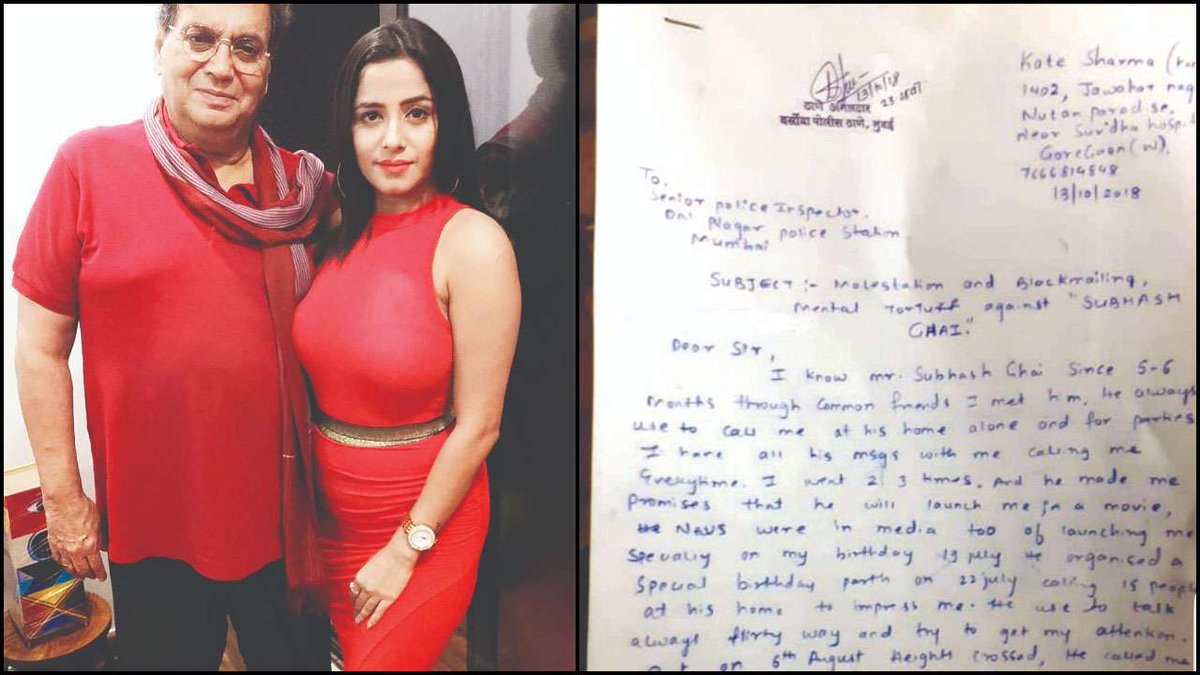 Kate Sharma
1402, Jawahar nag
ठाणे अंमलदार
वर्सोवा पोलीस ठाणे, मुंबई
Nutan paradise,
near Suvidha hosp
Goregaon (W).
7666814848
13/10/2018
To,
Senior police Inspector.
Dn' Nagar police Station
Mumbai
SUBJECT :- Molestation and Blackmailing,
Mental Torture against "SUBHASH
GHAI."
Dear Sir,
I know mr. Subhash Ghai Since 5-6
Months through Common friends I met him. he always
use to call me at his home alone and for parties
I have all his msgs with me calling me
Everytime. I went 2 3 times. And he made me
promises that he will launch me in a movie,
Navs were in media too of launching me
Specaliy on my birthday 19 july He organised a
Special birthday parth on 22 july caling 15 peopl
at his home to impress me. He use to talk
always flirty way and try to get my attention.
on 6th August Heights Crossed, He called me